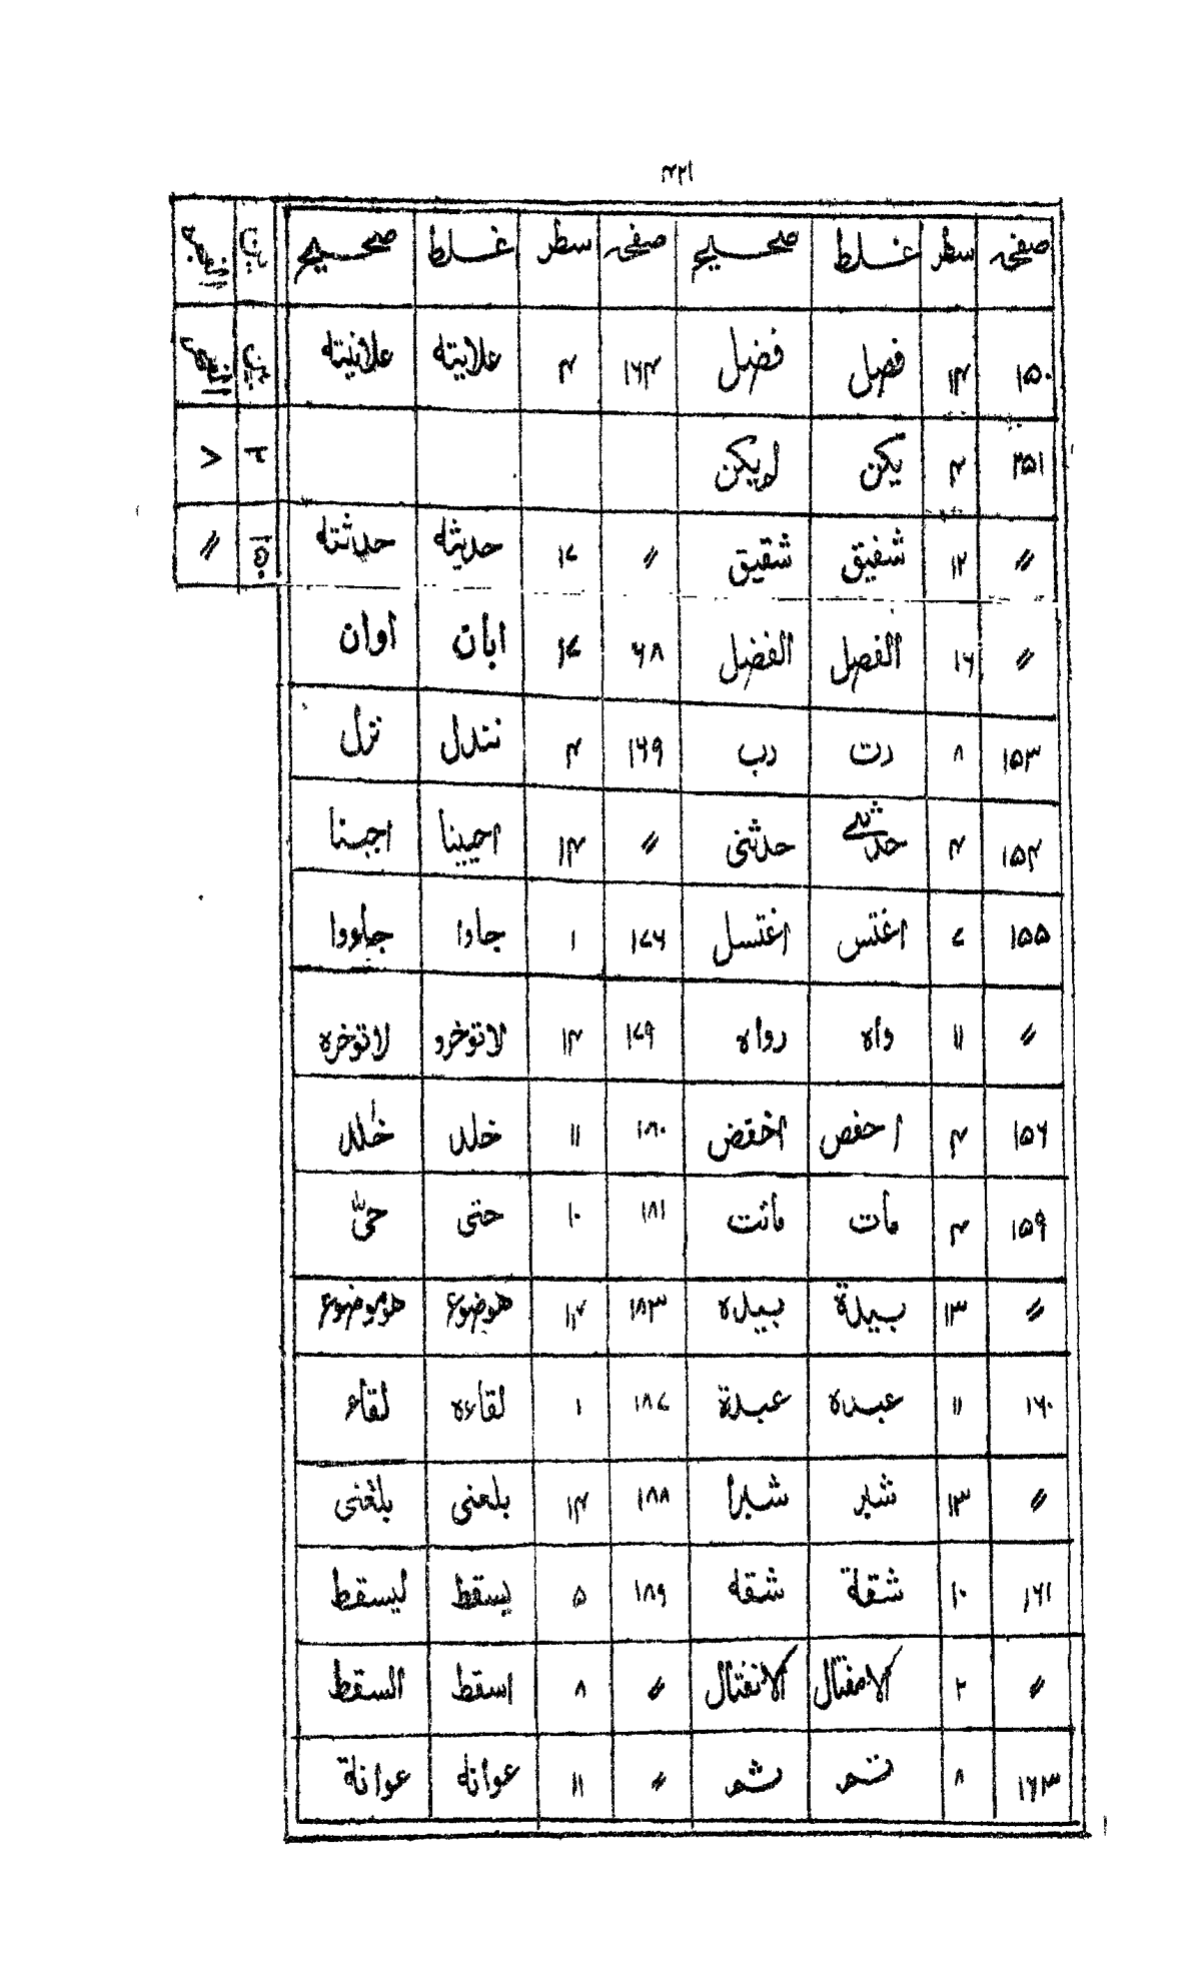 صفحہ سطر غلط صحیح صفحہ سطر غلط صحیح
۱۵۰ ۱۴ فصل فضل ۱۶۴ ۴ علایته علانیته
۴ یکن لم یکن
〃 ۱۲ شفیق شقیق 〃 ۱۷ حدیثه حدثته
〃 ۱۶ الفصل الفضل ۶۸ ۱۷ ابان اوان
۱۵۳ ۸ رت رب ۱۶۹ ۴ نندل نزل
۱۵۴ ۴ حدثنی 〃 ۱۴ احیینا اجبنا
۱۵۵ ۷ اغتس اغتسل ۱۷۶ ۱ جاوا جاءووا
〃 ۱۱ واه رواه ۱۷۹ ۱۴ لا توخرو لا توخره
۱۵۶ ۴ احفص اخفض ۱۸۰ ۱۱ خلد خٰلد
۱۵۹ ۴ مات مانت ۱۸۱ ۱۰ حتی حیّ
〃 ۱۳ بیدة بیده ۱۸۳ ۱۴ هوضوع هوموضوع
۱۶۰ ۱۱ عبده عبدة ۱۸۷ ۱ لقاءه لقاء
〃 ۱۳ شبر شبرا ۱۸۸ ۱۴ بلعنی بلغنی
۱۶۱ ۱۰ شقة شقه ۱۸۹ ۵ یسقط لیسقط
〃 ۲ الامفتال الانفتال 〃 ۸ اسقط السقط
۱۶۳ ۸ تم ثم 〃 ۱۱ عوانه عوانة